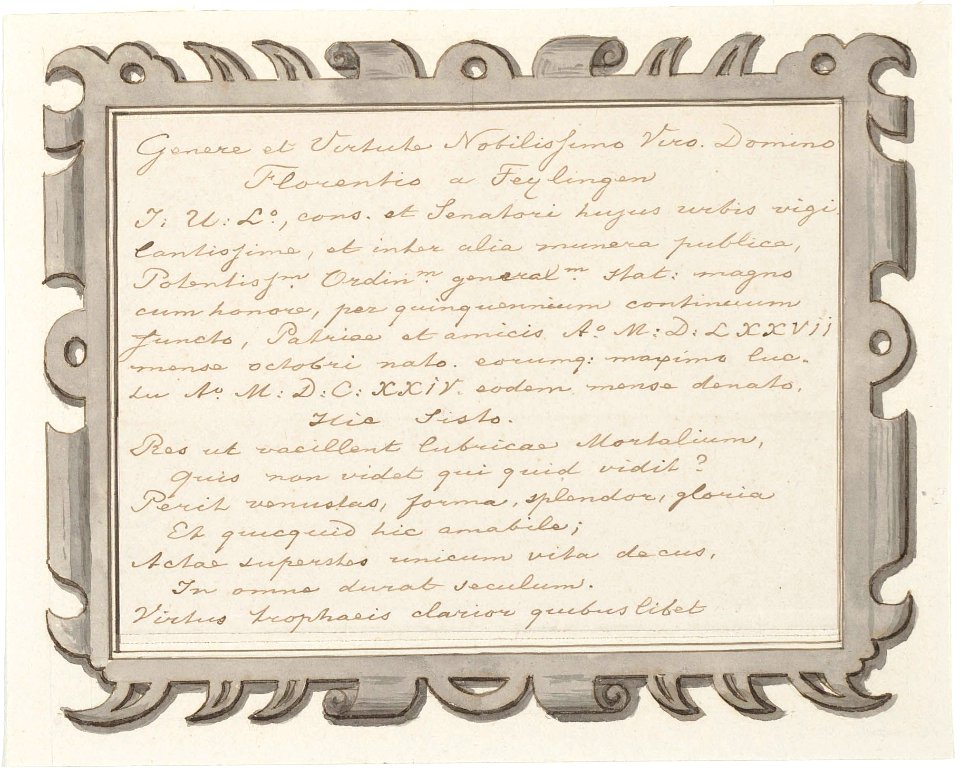 Genere et Virtute Nobilissimo Viro. Domino
Florentio a Teylingen
J: U: Lº., cons. et Senatori hujus urbis vigi
lantissime, et inter alia munera publica,
Potentissm. Ordinm. generalm. stat: magno
cum honore, per quinquennium continuum
functo, Patriae et amicis Aº. M: D: LXXVII
mense octobri nato. eorumq: maximo luc-
tu Aº. M: D: C: XXIV. eodem mense denato.
Hic Sisto.
Res ut vacillent lubricae Mortalium,
Quis non videt qui quid vidit?
Perit venustas, forma, splendor, gloria
Et quicquid hic amabile;
Actae superstes unicum vita decus,
In omne durat seculum.
Virtus trophaeis clarior quibus libet